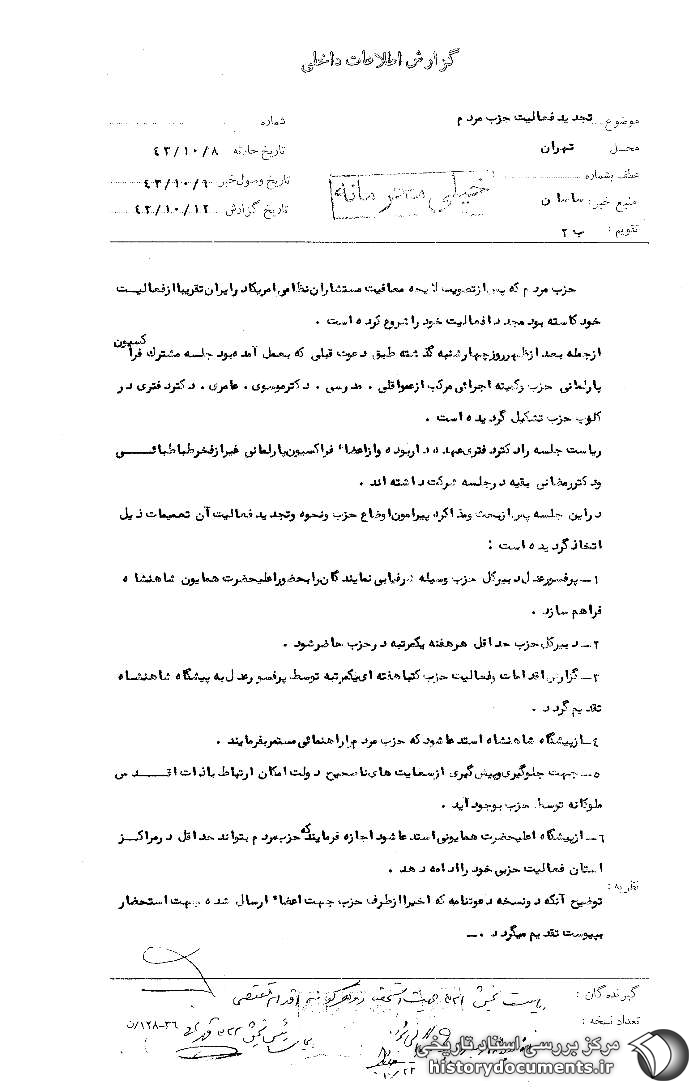 گزارش اطلاعات داخلی
موضوع تجدید فعالیت حزب مردم
شماره
محل تهران
تاریخ حادثه ٤٣/١٠/٨
عطف بشماره
تاریخ وصول خبر ٤٣/١٠/٩
خیلی محرمانه
منبع خبر: ساسان
تاریخ گزارش ٤٣/١٠/١٢
تقویم: ب ٢
حزب مردم که پس از تصویب لایحه معافیت مستشاران نظامی امریکا در ایران تقریبا از فعالیت
خود کاسته بود مجددا فعالیت خود را شروع کرده است .
ازجمله بعد از ظهر روز چهارشنبه گذشته طبق دعوت قبلی که بعمل آمده بود جلسه مشترک فراکسیون
پارلمانی حزب وکمیته اجرائی مرکب از عمواقلی ، مدرسی ، دکتر موسوی ، عامری ، دکتر دفتری در
کلوپ حزب تشکیل گردیده است .
ریاست جلسه را دکتر دفتری عهده دار بوده و از اعضاء فراکسیون پارلمانی غیر از فخر طباطبائـــی
ودکتر رمضانی بقیه در جلسه شرکت داشته اند .
در این جلسه پس از بحث ومذاکره پیرامون اوضاع حزب ونحوه وتجدید فعالیت آن تصمیمات ذیل
اتخاذ گردیده است :
١ـ پرفسور عدل دبیرکل حزب وسیله شرفیابی نمایندگان را بحضور اعلیحضرت همایون شاهنشاه
فراهم سازد .
٢ـ دبیرکل حزب حداقل هر هفته یکمرتبه در حزب حاضر شود .
٣ـ گزارش اقدامات وفعالیت حزب کتبا هفته ای یکمرتبه توسط پرفسور عدل به پیشگاه شاهنشاه
تقدیم گردد .
٤ـ از پیشگاه شاهنشاه استدعا شود که حزب مردم را راهنمائی مستمر بفرمایند .
٥ـ جهت جلوگیری وپیش گیری از سعایت های ناصحیح دولت امکان ارتباط با ذات اقـــدس
ملوکانه توسط حزب بوجود آید .
٦ـ از پیشگاه اعلیحضرت همایونی استدعا شود اجازه فرمایند که حزب مردم بتواند حداقل در مراکــز
استان فعالیت حزبی خود را ادامه دهد .
نظریه :
توضیح آنکه دو نسخه دعوتنامه که اخیرا از طرف حزب جهت اعضاء ارسال شده جهت استحضار
بپیوست تقدیم میگردد .ــ
گیرندگان :
ریاست بخش
تعداد نسخه :
مرکز بررسی اسناد تاریخی
historydocuments.ir